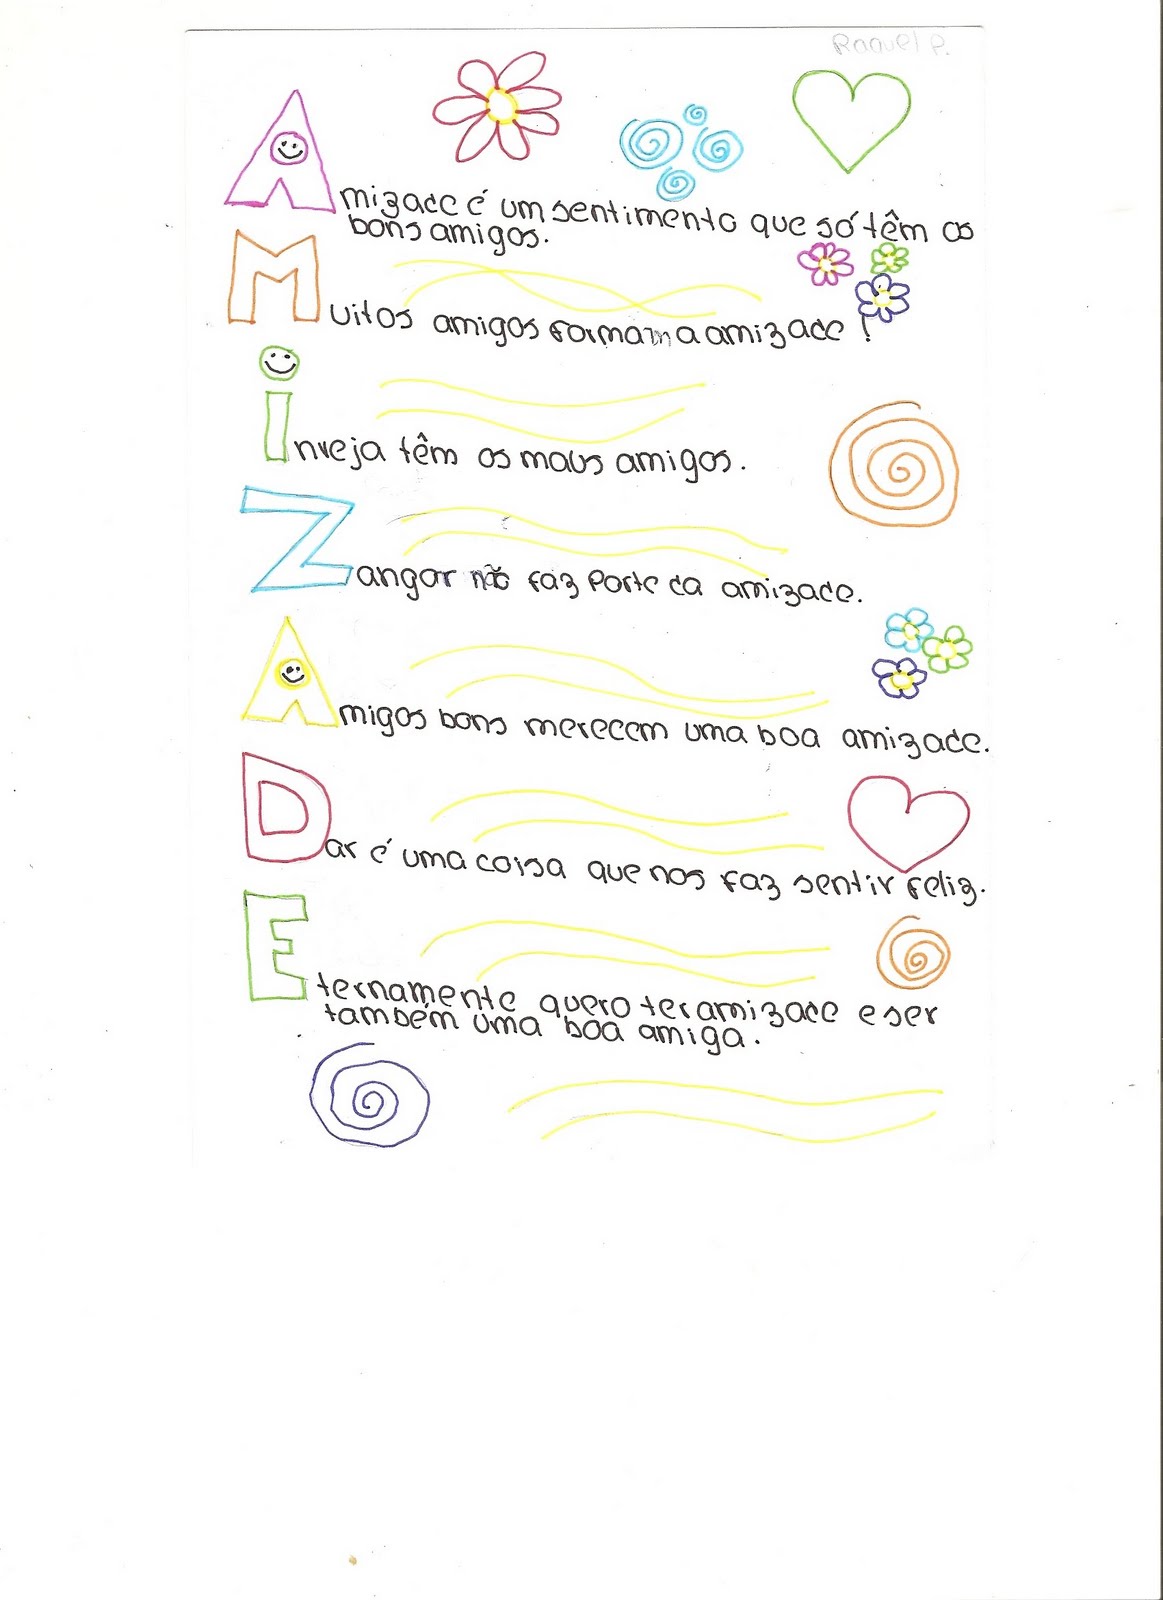 Raquel P.
Amizade é um sentimento que só têm os
bons amigos.
Muitos amigos formam a amizade!
Inveja têm os maus amigos.
Zangar não faz parte da amizade.
Amigos bons merecem uma boa amizade.
Dar é uma coisa que nos faz sentir feliz.
Eternamente quero ter amizade e ser
também uma boa amiga.